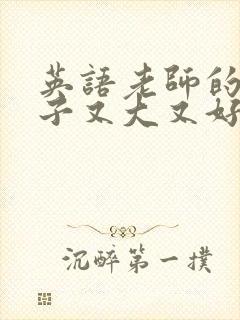 英語老師的
子又大又好
沉醉第一撲